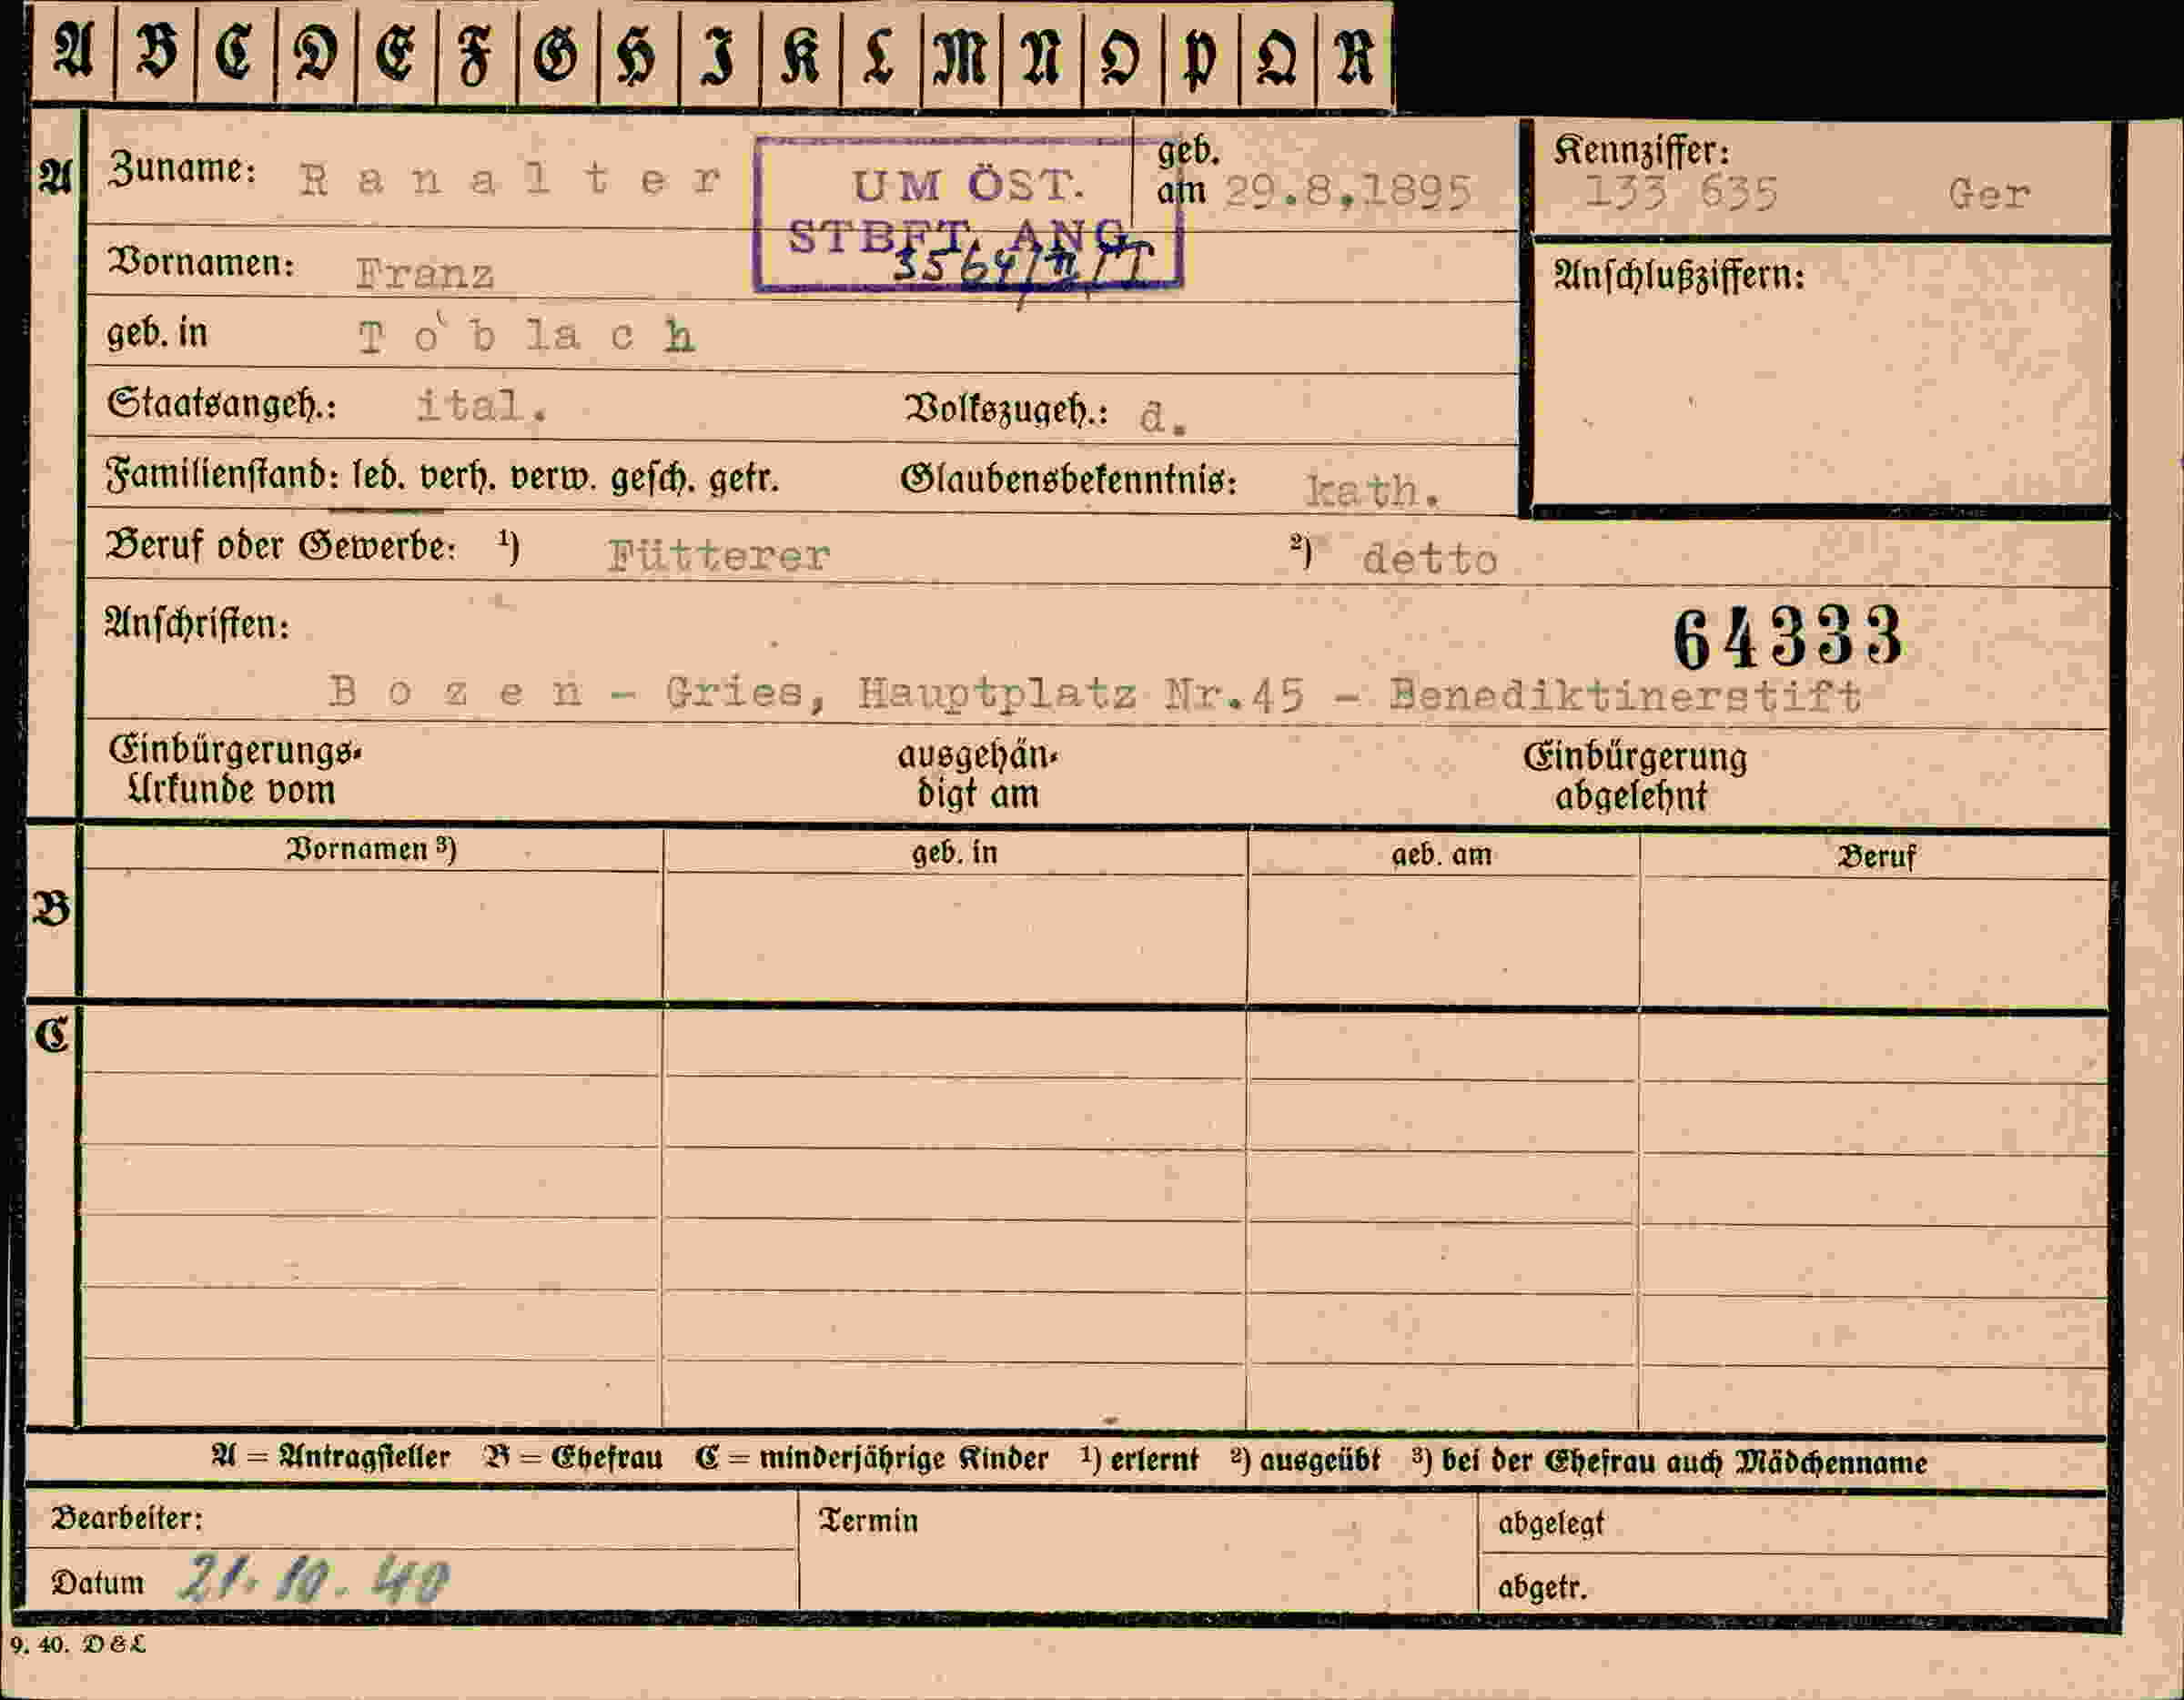 A B C D E F G H I K L M N O P Q R
A Zuname: Ranalter geb. am 29.8.1895 Kennziffer: 133 635 Ger
UM ÖST.
STBFT. ANG.
Vornamen: Franz Anschlußziffern:
geb. in Toblach
Staatsangeh.: ital. Volkszugeh.: d.
Familienstand: led. verh. verw. gesch. getr. Glaubensbekenntnis: kath.
Beruf oder Gewerbe: 1) Fütterer 2) detto
Anschriften: 64333
Bozen - Gries, Hauptplatz Nr.45 - Benediktinerstift
Einbürgerungs- ausgehän- Einbürgerung
Urkunde vom digt am abgelehnt
Vornamen 3) geb. in geb. am Beruf
B
C
A = Antragsteller B = Ehefrau C = minderjährige Kinder 1) erlernt 2) ausgeübt 3) bei der Ehefrau auch Mädchenname
Bearbeiter: Termin abgelegt
Datum 21.10.40 abgetr.
9. 40. D & L